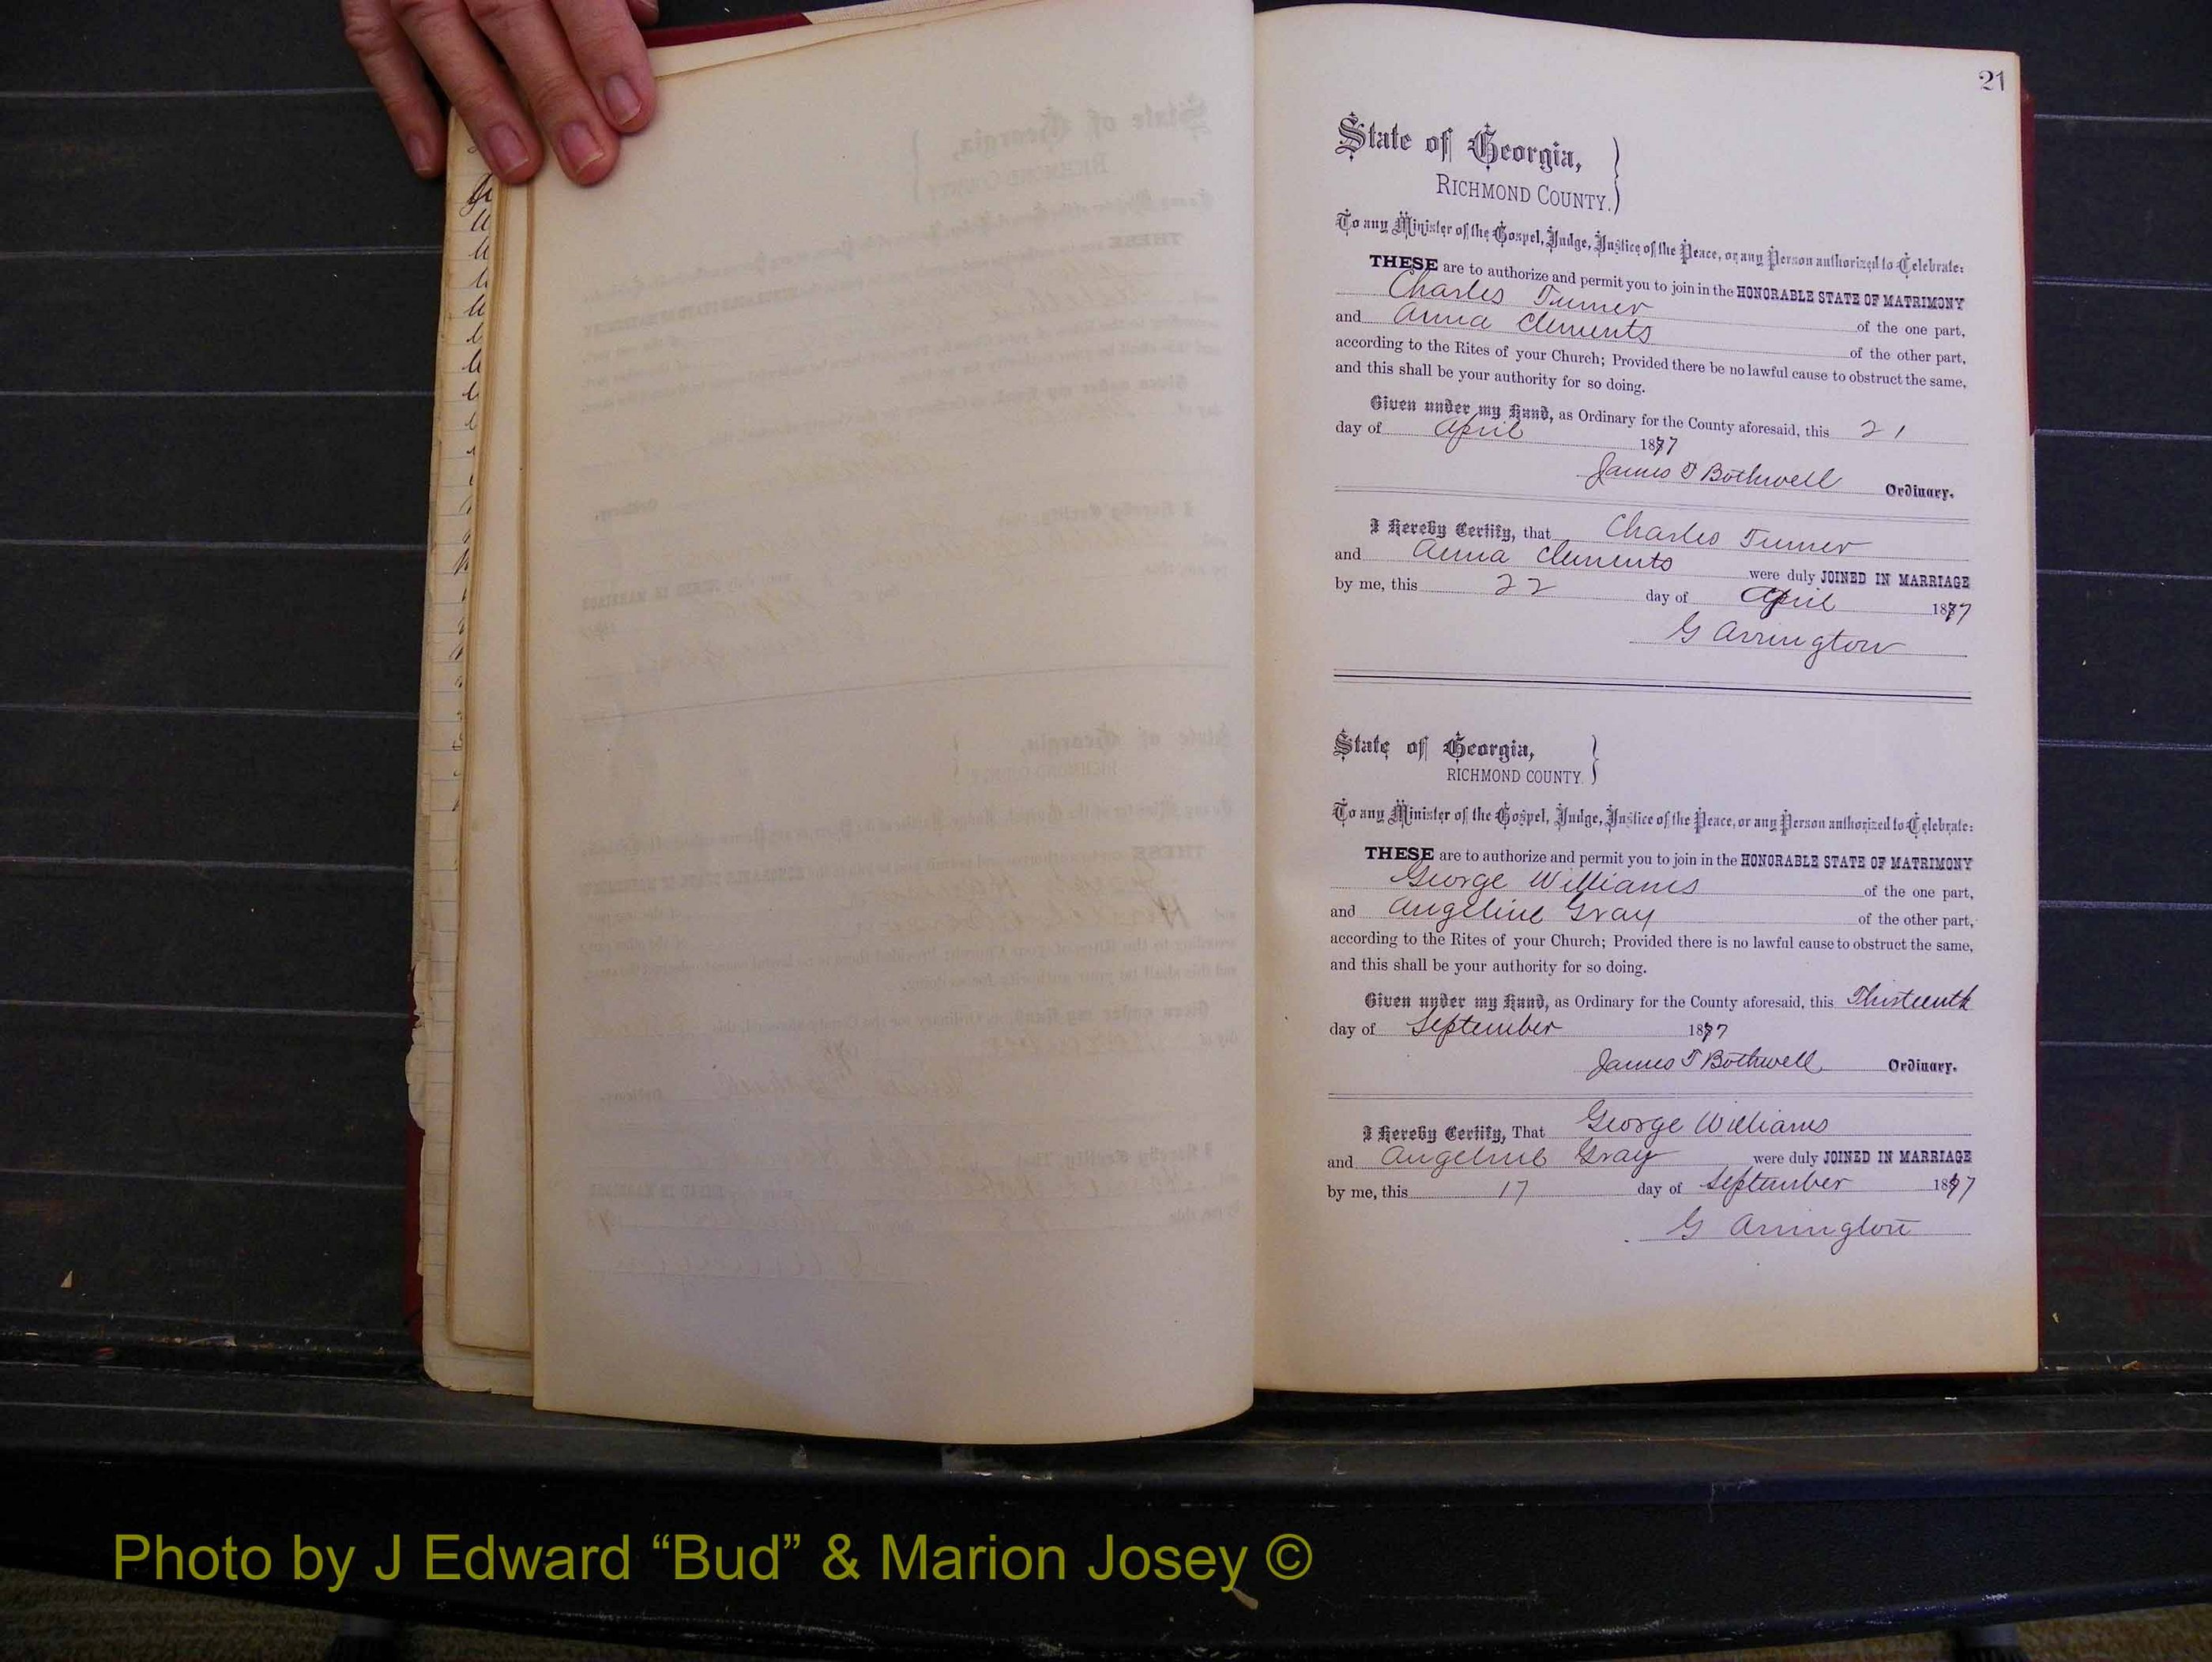 21
State of Georgia,
RICHMOND COUNTY.
To any Minister of the Gospel, Judge, Justice of the Peace, or any Person authorized to Celebrate:
THESE are to authorize and permit you to join in the HONORABLE STATE OF MATRIMONY
Charles Turner of the one part,
and Anna Clements of the other part,
according to the Rites of your Church; Provided there be no lawful cause to obstruct the same,
and this shall be your authority for so doing.
Given under my Hand, as Ordinary for the County aforesaid, this 21
day of April 1877
James T Bothwell Ordinary.
I Hereby Certify, that Charles Turner
and Anna Clements were duly JOINED IN MARRIAGE
by me, this 22 day of April 1877
G Arrington
State of Georgia,
RICHMOND COUNTY.
To any Minister of the Gospel, Judge, Justice of the Peace, or any Person authorized to Celebrate:
THESE are to authorize and permit you to join in the HONORABLE STATE OF MATRIMONY
George Williams of the one part,
and Angeline Gray of the other part,
according to the Rites of your Church; Provided there is no lawful cause to obstruct the same,
and this shall be your authority for so doing.
Given under my Hand, as Ordinary for the County aforesaid, this Thirteenth
day of September 1877
James T Bothwell Ordinary.
I Hereby Certify, That George Williams
and Angeline Gray were duly JOINED IN MARRIAGE
by me, this 17 day of September 1877
G Arrington
Photo by J Edward “Bud” & Marion Josey ©